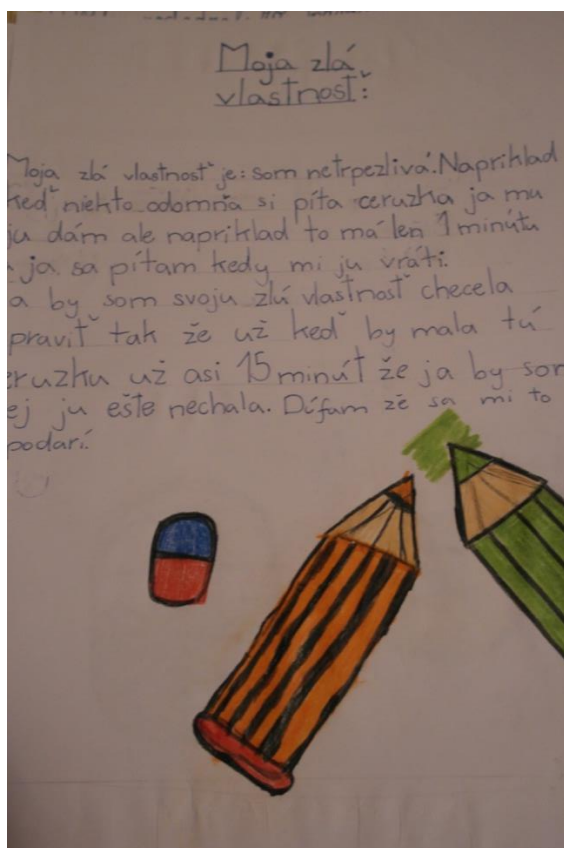 Moja zlá
vlastnosť:
Moja zlá vlastnosť je: som netrpezlivá. Napriklad
keď niekto odomňa si píta ceruzka ja mu
ju dám ale napriklad to má len 1 minútu
ja sa pítam kedy mi ju vráti.
a by som svoju zlú vlastnosť checela
praviť tak že už keď by mala tú
eruzku už asi 15 minút že ja by som
ej ju ešte nechala. Dúfam že sa mi to
podarí.